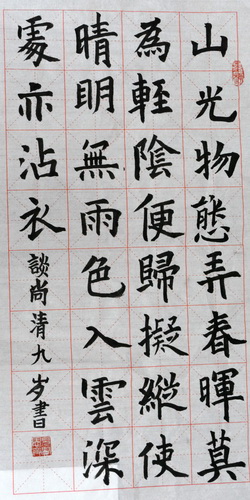 山光物態弄春暉莫
為輕陰便歸擬縱使
晴明無雨色入雲深
處亦沾衣
談尚清九岁書